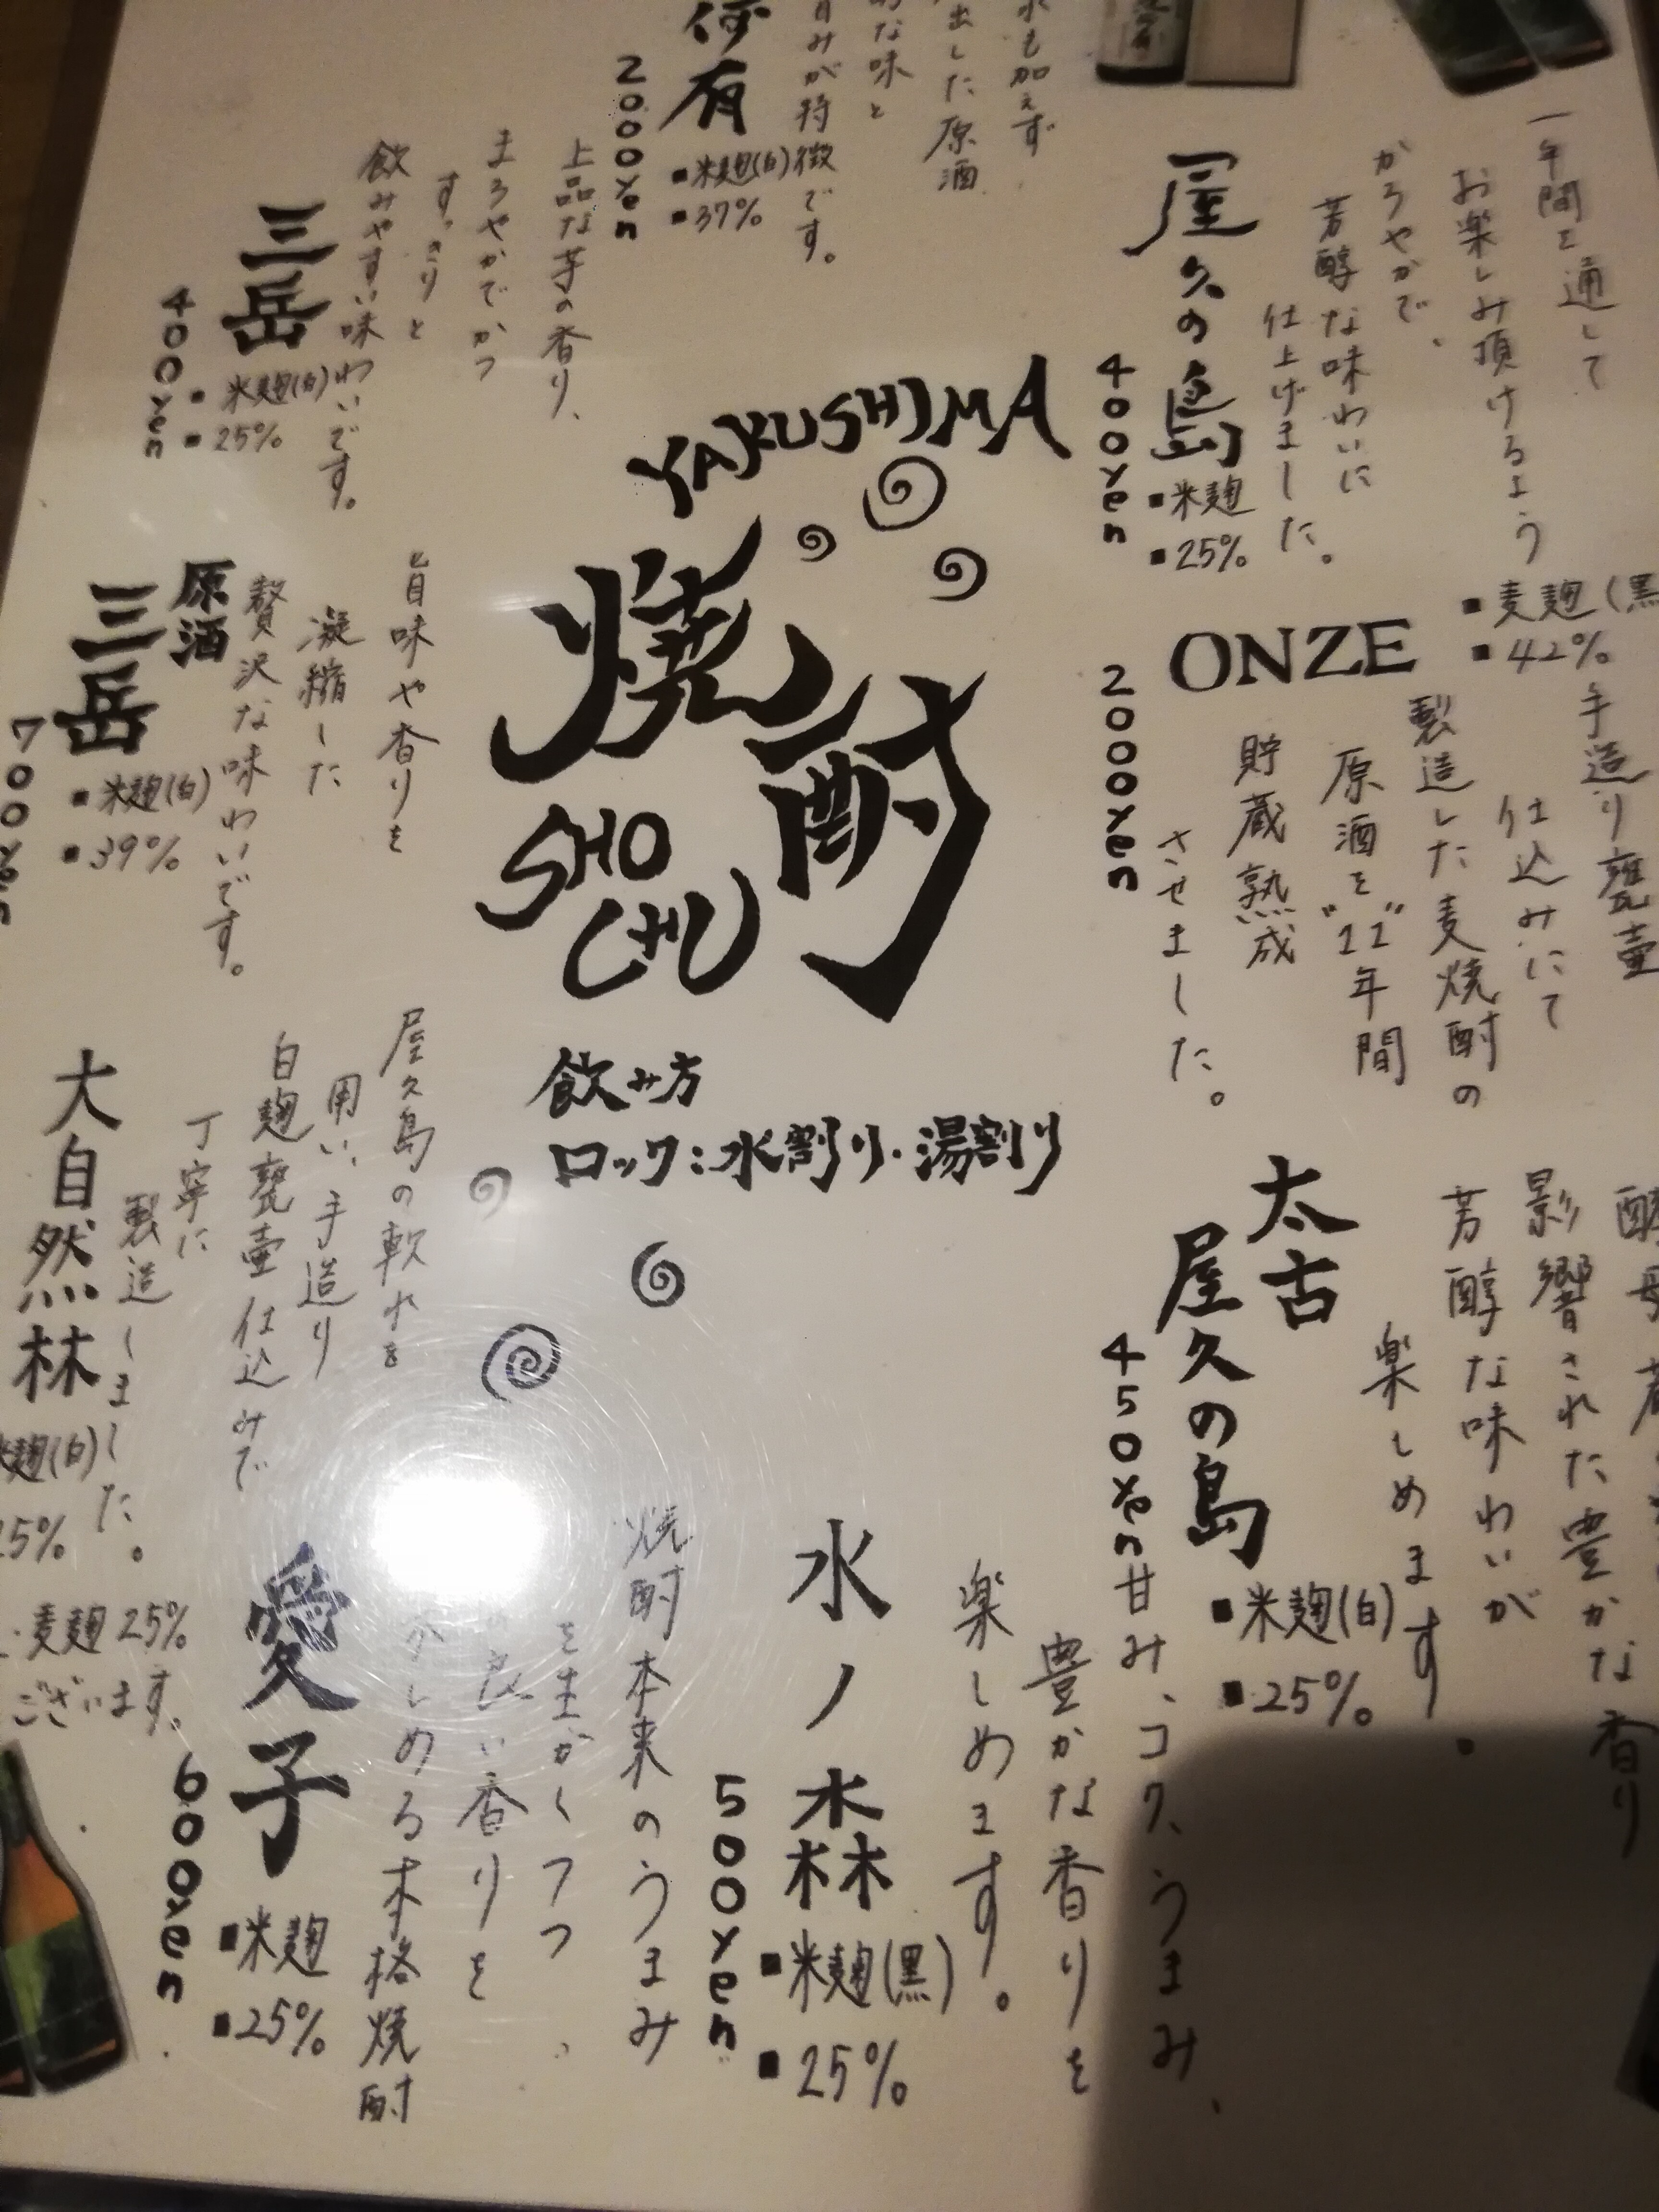 一年間を通して
お楽しみ頂けるよう
かろやかで、
芳醇な味わいに
仕上げました。
屋久の島
■米麹
■25%
400yen
水も加えず
出した原酒
な味と
旨みが特徴です。
何有
■米麹(白)
■37%
2000yen
上品な芋の香り、
まろやかでかつ
すっきりと
飲みやすい味わいです。
三岳
■米麹(白)
■25%
400yen
YAKUSHIMA
焼酎
SHO
CHU
飲み方
ロック:水割り・湯割り
ONZE
■麦麹(黒
■42%
手造り甕壷
仕込みにて
製造した麦焼酎の
原酒を"11"年間
貯蔵熟成
させました。
2000yen
旨味や香りを
凝縮した
贅沢な味わいです。
原酒
三岳
■米麹(白)
■39%
700yen
屋久島の軟水を
用い、手造り
白麹甕壷仕込みで
丁寧に
製造しました。
大自然林
米麹(白)
25%
・麦麹25%
ございます。
影響された豊かな香り
芳醇な味わいが
楽しめます。
太古
屋久の島
■米麹(白)
■25%
450yen
甘み、コク、うまみ、
豊かな香りを
楽しめます。
水ノ森
■米麹(黒)
■25%
500yen
焼酎本来のうまみ
を生かしつつ、
良い香りを
しめる本格焼酎
愛子
■米麹
■25%
600yen